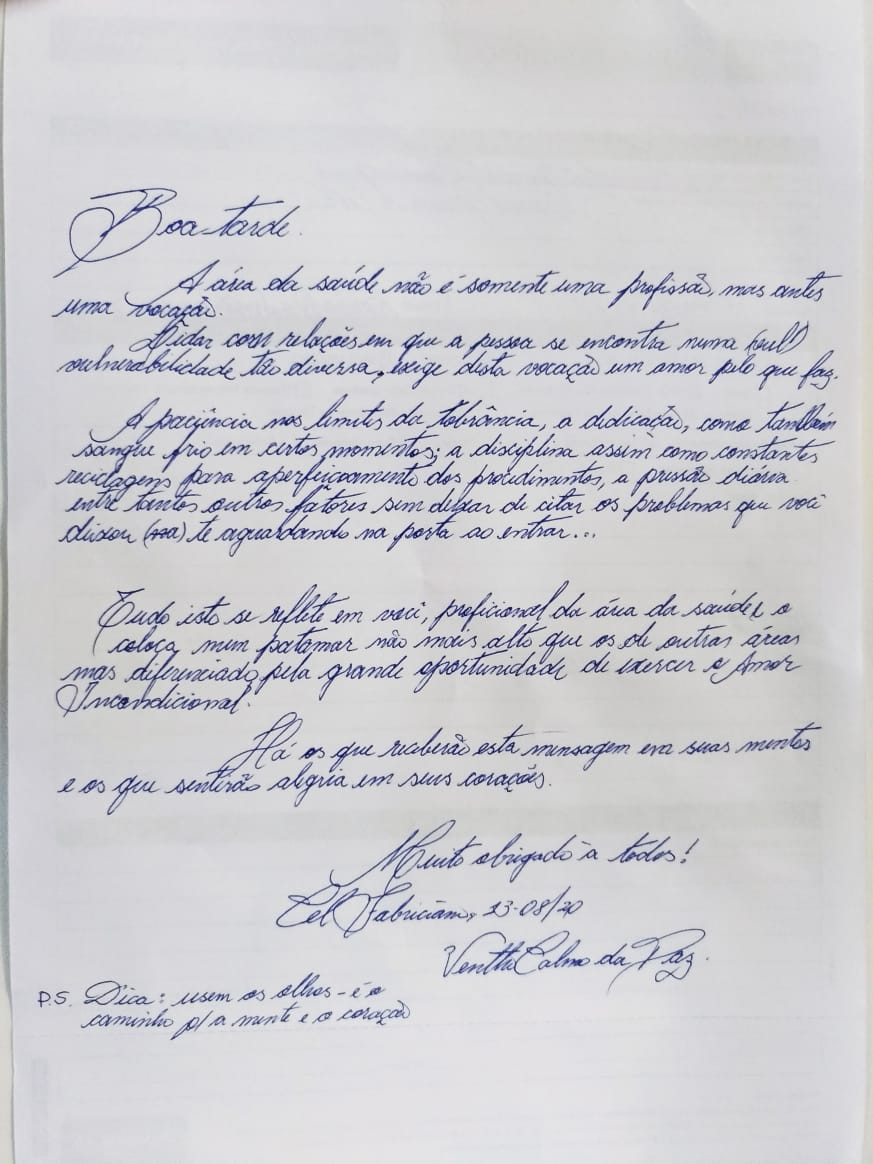 Boa tarde.
A área da saúde não é somente uma profissão, mas antes
uma vocação.
Lidar com relações em que a pessoa se encontra numa
vulnerabilidade tão diversa, exige desta vocação um amor pelo que faz.
A paciência nos limites da tolerância, a dedicação, como também
sangue frio em certos momentos; a disciplina assim como constantes
reciclagens para aperfeiçoamento dos procedimentos, a pressão diária
entre tantos outros fatores sem deixar de citar os problemas que você
deixou te aguardando na porta ao entrar...
Tudo isto se reflete em você, proficional da área da saúde e o
coloca num patamar não mais alto que os de outras áreas
mas diferenciado, pela grande oportunidade de exercer o Amor
Incondicional.
Há os que receberão esta mensagem em suas mentes
e os que sentirão alegria em seus corações.
Muito obrigado a todos!
Cel Fabriciano, 23-08/20
Calmo da Paz.
P.S. Dica: usem os olhos - é o
caminho p/ a mente e o coração